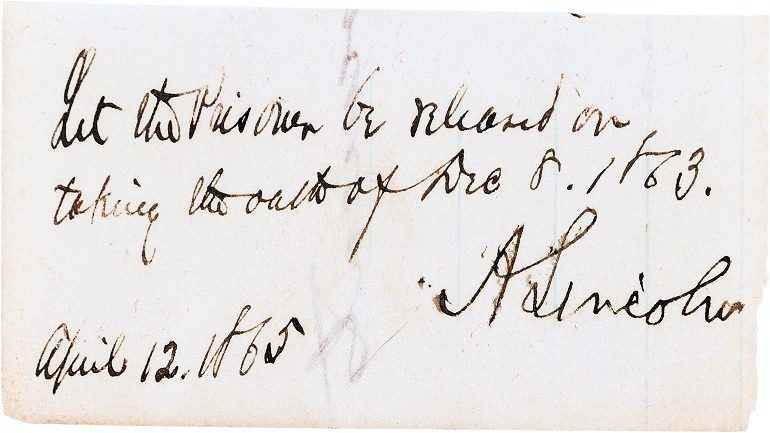 Let the Prisoner be released on
taking the oath of Dec 8. 1863.
A. Lincoln
April 12. 1865